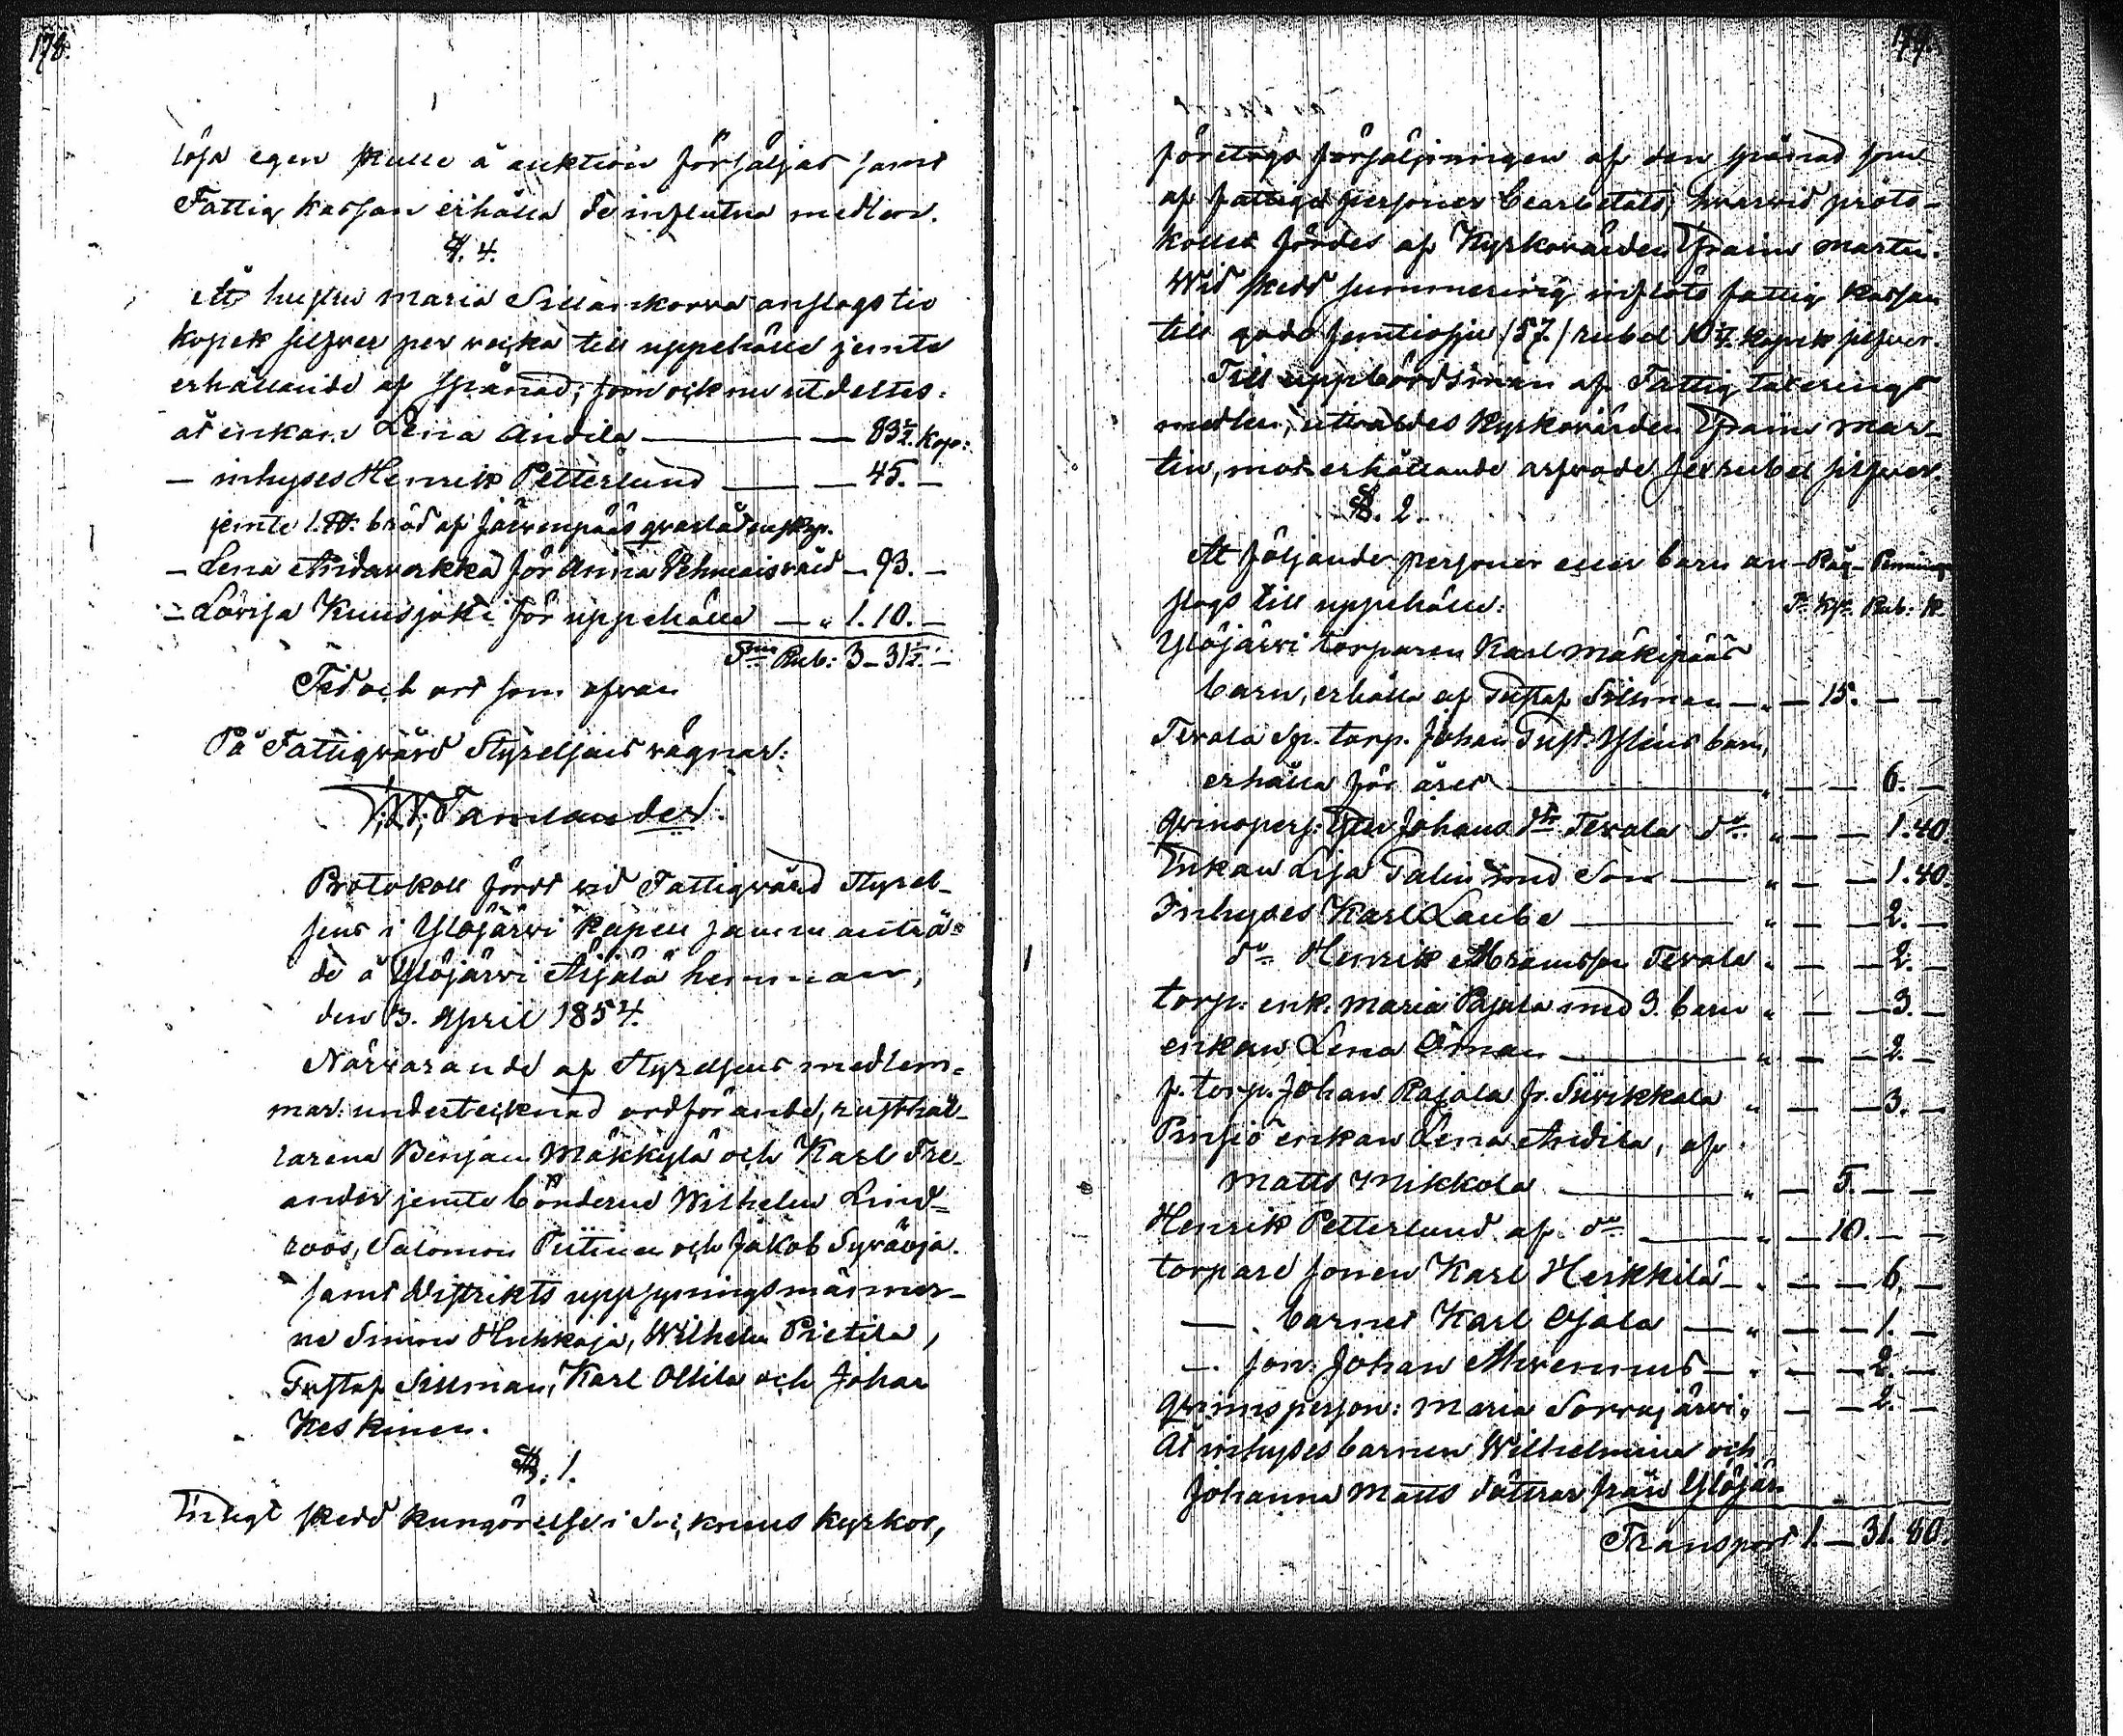 178.
lösa egen skulle å auktion försäljas samt
Fattig kassan erhålla de influtna medlen.
§. 4.
Åt hustru Maria Sillankorva anslogs tio
kopek silfver per vecka till uppehälle jemte
erhållande af spånad; som ock nu utdeltes:
åt enkan Lena Andila — — 83½ Kop:
— inhyses Henrik Petterlund — — 45. —
jemte 1. ℔: bröd af Järvenpääs qvarlåtenskap.
— Lena Andavarkka för Anna vård — 93. —
— Lovisa Kuusjoki för uppehälle — " 1. 10. —
Sma Rub: 3 — 31½ —
Tid och ort som ofvan
På Fattigvård Styrelsens vägnar:
Tamlander.
Protokoll fördt vid Fattigvård Styrel-
sens i Ylöjärvi Kapell sammanträ=
de å Ylöjärvi Äijälä hemman,
den 3. April 1854.
Närvarande af Styrelsens medlem=
mar: undertecknad ordförande, rusthål-
larena Benjam Mäkkylä och Karl Tre-
ander jemte bönderne Wilhelm Lind=
roos, Salomon Pietinen och Jakob Syväoja.
samt Distrikts uppsyningsmänner-
ne Simon Huhkaja, Wilhelm Pietilä,
Gustaf Sillman, Karl Ollila och Johan
Keskinen.
§. 1.
Enligt skedd kungörelse i Socknens kyrkor,
179.
företogs försäljningen af den spånad som
af fattiga personer bearbetats, hvarvid proto-
kollet fördes af Kyrkovärden Efraim Martin.
Wid skedd summering inflöto fattig kassan
till godo femtiosju /57./ rubel 10½ kopek silfver.
Till uppbördsman af Fattig taxerings
medlen, utvaldes Kyrkovärden Efraim Mar-
tin, mot erhållande arfvode sex rubel silfver.
§. 2.
At följande personer eller barn an- Råg- Penning
slogs till uppehälle: T. Kp. Rub: K.
Ylöjärvi torparen Karl Mäkipääs
barn, erhålla af Gustaf Sillman — " — 15. — —
Tevala Sp. torp. Johan Gust: Ylens barn,
erhålla för året — " — — 6. —
qvinspers: Johans dtr Tevala do " — — 1. 40.
Enkan Lisa Palin med Son — " — — 1. 40.
Inhyses Karl Laube — " — — 2. —
do Henrik Abramsson Tevala " — — 2. —
torp: enk: Maria Pajula med 3. barn " — — 3. —
enkan Lena Öman — " — — 2. —
f. torp. Johan Rajala fr. Siivikkala " — — 3. —
Pinsiö enkan Lena Andila, af
Matts Mikkola — " — 5. — —
Henrik Petterlund af do — " — 10. — —
torpare sonen Karl Heikkilä — " — — 6. —
— barnet Karl Ojala — " — — 1. —
— son: Johan Ahvenus — " — — 2. —
qvinnsperson: Maria Sorvajärvi " — — 2. —
Åt inhyses barnen Wilhelmina och
Johanna Matts döttrar från Ylöjär-
Transport 1. — 31. 80.